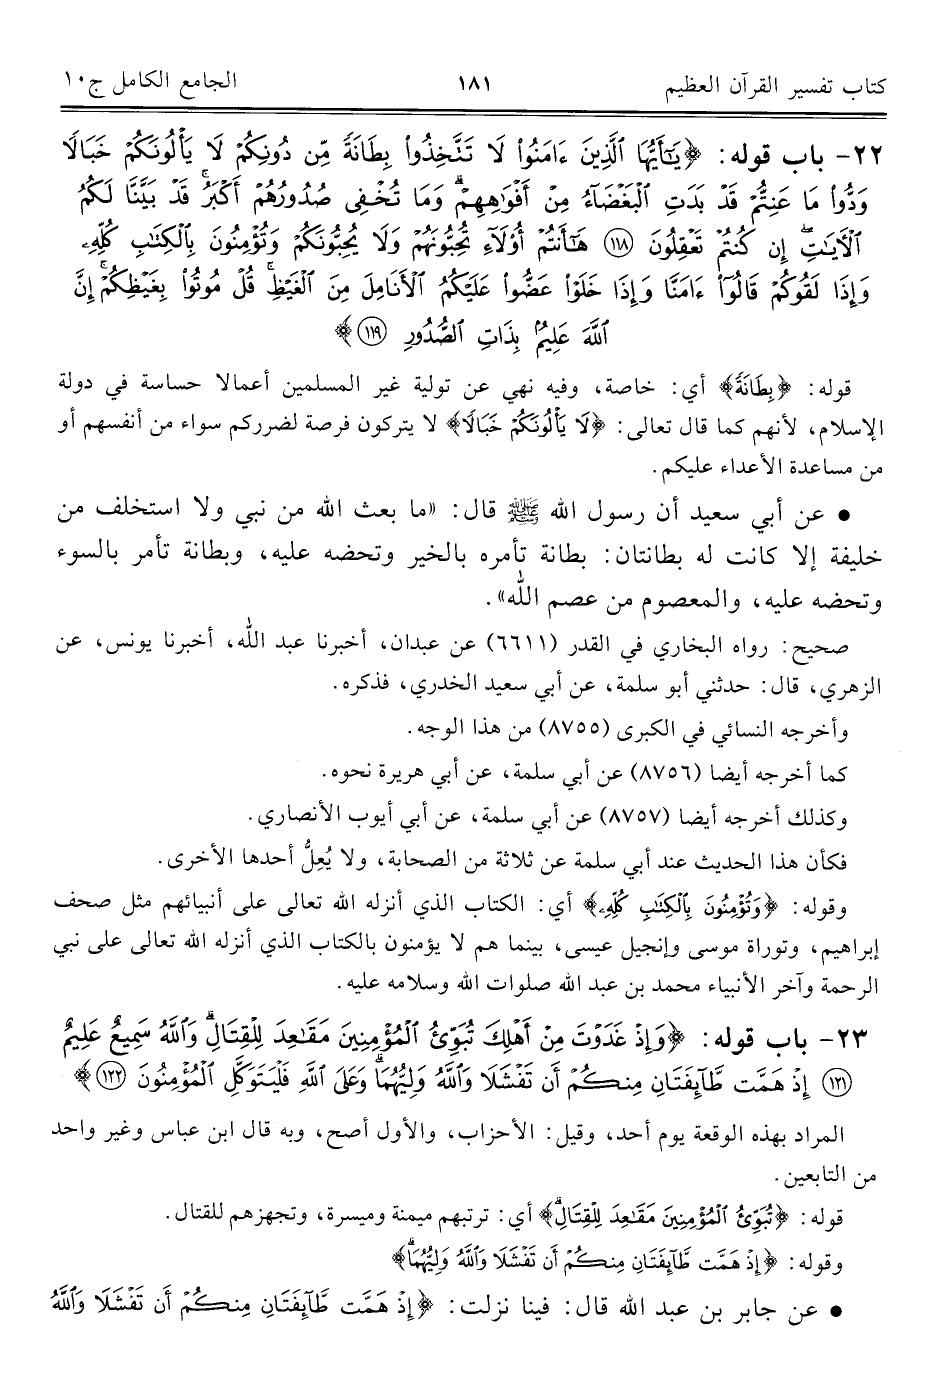 كتاب تفسير القرآن العظيم ١٨١ الجامع الكامل ج١٠
٢٢- باب قوله: ﴿يَٰٓأَيُّهَا ٱلَّذِينَ ءَامَنُوا۟ لَا تَتَّخِذُوا۟ بِطَانَةً مِّن دُونِكُمْ لَا يَأْلُونَكُمْ خَبَالًا
وَدُّوا۟ مَا عَنِتُّمْ قَدْ بَدَتِ ٱلْبَغْضَآءُ مِنْ أَفْوَٰهِهِمْ ۚ وَمَا تُخْفِى صُدُورُهُمْ أَكْبَرُ ۚ قَدْ بَيَّنَّا لَكُمُ
ٱلْءَايَٰتِ ۖ إِن كُنتُمْ تَعْقِلُونَ ﴿١١٨﴾ هَٰٓأَنتُمْ أُو۟لَآءِ تُحِبُّونَهُمْ وَلَا يُحِبُّونَكُمْ وَتُؤْمِنُونَ بِٱلْكِتَٰبِ كُلِّهِۦ
وَإِذَا لَقُوكُمْ قَالُوٓا۟ ءَامَنَّا وَإِذَا خَلَوْا۟ عَضُّوا۟ عَلَيْكُمُ ٱلْأَنَامِلَ مِنَ ٱلْغَيْظِ ۚ قُلْ مُوتُوا۟ بِغَيْظِكُمْ ۗ إِنَّ
ٱللَّهَ عَلِيمٌۢ بِذَاتِ ٱلصُّدُورِ ﴿١١٩﴾﴾
قوله: ﴿بِطَانَةً﴾ أي: خاصة، وفيه نهي عن تولية غير المسلمين أعمالا حساسة في دولة
الإسلام، لأنهم كما قال تعالى: ﴿لَا يَأْلُونَكُمْ خَبَالًا﴾ لا يتركون فرصة لضرركم سواء من أنفسهم أو
من مساعدة الأعداء عليكم.
● عن أبي سعيد أن رسول الله ﷺ قال: «ما بعث الله من نبي ولا استخلف من
خليفة إلا كانت له بطانتان: بطانة تأمره بالخير وتحضه عليه، وبطانة تأمر بالسوء
وتحضه عليه، والمعصوم من عصم الله».
صحيح: رواه البخاري في القدر (٦٦١١) عن عبدان، أخبرنا عبد الله، أخبرنا يونس، عن
الزهري، قال: حدثني أبو سلمة، عن أبي سعيد الخدري، فذكره.
وأخرجه النسائي في الكبرى (٨٧٥٥) من هذا الوجه.
كما أخرجه أيضا (٨٧٥٦) عن أبي سلمة، عن أبي هريرة نحوه.
وكذلك أخرجه أيضا (٨٧٥٧) عن أبي سلمة، عن أبي أيوب الأنصاري.
فكأن هذا الحديث عند أبي سلمة عن ثلاثة من الصحابة، ولا يُعِلُّ أحدها الأخرى.
وقوله: ﴿وَتُؤْمِنُونَ بِٱلْكِتَٰبِ كُلِّهِۦ﴾ أي: الكتاب الذي أنزله الله تعالى على أنبيائهم مثل صحف
إبراهيم، وتوراة موسى وإنجيل عيسى، بينما هم لا يؤمنون بالكتاب الذي أنزله الله تعالى على نبي
الرحمة وآخر الأنبياء محمد بن عبد الله صلوات الله وسلامه عليه.
٢٣- باب قوله: ﴿وَإِذْ غَدَوْتَ مِنْ أَهْلِكَ تُبَوِّئُ ٱلْمُؤْمِنِينَ مَقَٰعِدَ لِلْقِتَالِ ۗ وَٱللَّهُ سَمِيعٌ عَلِيمٌ
﴿١٢١﴾ إِذْ هَمَّت طَّآئِفَتَانِ مِنكُمْ أَن تَفْشَلَا وَٱللَّهُ وَلِيُّهُمَا ۗ وَعَلَى ٱللَّهِ فَلْيَتَوَكَّلِ ٱلْمُؤْمِنُونَ ﴿١٢٢﴾﴾
المراد بهذه الوقعة يوم أحد، وقيل: الأحزاب، والأول أصح، وبه قال ابن عباس وغير واحد
من التابعين.
قوله: ﴿تُبَوِّئُ ٱلْمُؤْمِنِينَ مَقَٰعِدَ لِلْقِتَالِ ۗ﴾ أي: ترتبهم ميمنة وميسرة، وتجهزهم للقتال.
وقوله: ﴿إِذْ هَمَّت طَّآئِفَتَانِ مِنكُمْ أَن تَفْشَلَا وَٱللَّهُ وَلِيُّهُمَا ۗ﴾
● عن جابر بن عبد الله قال: فينا نزلت: ﴿إِذْ هَمَّت طَّآئِفَتَانِ مِنكُمْ أَن تَفْشَلَا وَٱللَّهُ